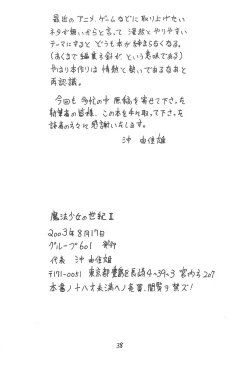 最近のアニメ、ゲームなどに取り上げたい
ネタが無いからと言って 漠然とやりやすい
テーマにすると どうも本が締まらなくなる。
(あくまで編集方針が、という意味である)
やはり本作りは 情熱と勢いであるなあと
再認識。
今回も 多忙の中 原稿を寄せて下さった
執筆者の皆様、この本を手に取って下さった
読者の方々に感謝いたします。
沖 由佳雄
魔法少女の世紀 Ⅱ
2003年8月17日
グループ601 発行
代表 沖 由佳雄
〒171-0051 東京都豊島区長崎4-39-3 宮内方207
本書ノ十八才未満ヘノ売買、閲覧ヲ禁ズ!
38